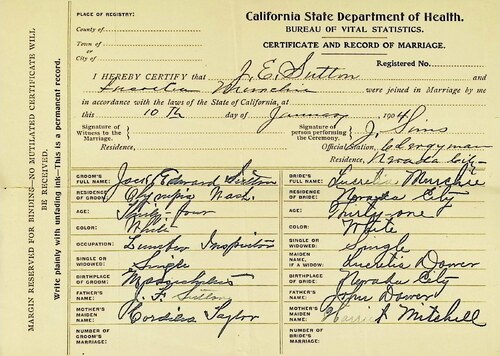 PLACE OF REGISTRY:
County of
Town of
or
City of
California State Department of Health.
BUREAU OF VITAL STATISTICS.
CERTIFICATE AND RECORD OF MARRIAGE.
Registered No.
I HEREBY CERTIFY that J. E. Sutton and
Lucretia Murchie were joined in Marriage by me
in accordance with the laws of the State of California, at
this 10 Th day of January 1904
Signature of Witness to the Marriage.
Signature of person performing the Ceremony. J. Sims
Official Station, Clergyman
Residence,
Residence, Nevada City
MARGIN RESERVED FOR BINDING—NO MUTILATED CERTIFICATE WILL BE RECEIVED.
Write plainly with unfading ink—This is a permanent record.
GROOM'S FULL NAME: Jack Edward Sutton
RESIDENCE OF GROOM: Olympia Wash.
AGE: Thirty-four
COLOR: White
OCCUPATION: Lumber Inspector
SINGLE OR WIDOWED: Single
BIRTHPLACE OF GROOM:
FATHER'S NAME: F Sutton
MOTHER'S MAIDEN NAME: Cordelia Taylor
NUMBER OF GROOM'S MARRIAGE:
BRIDE'S FULL NAME: Lucretia Murchie
RESIDENCE OF BRIDE: Nevada City
AGE: Thirty one
COLOR: White
SINGLE OR WIDOWED: Single
MAIDEN NAME, IF A WIDOW: Lucretia Dower
BIRTHPLACE OF BRIDE: Nevada City
FATHER'S NAME: John Dower
MOTHER'S MAIDEN NAME: Mitchell
NUMBER OF BRIDE'S MARRIAGE: